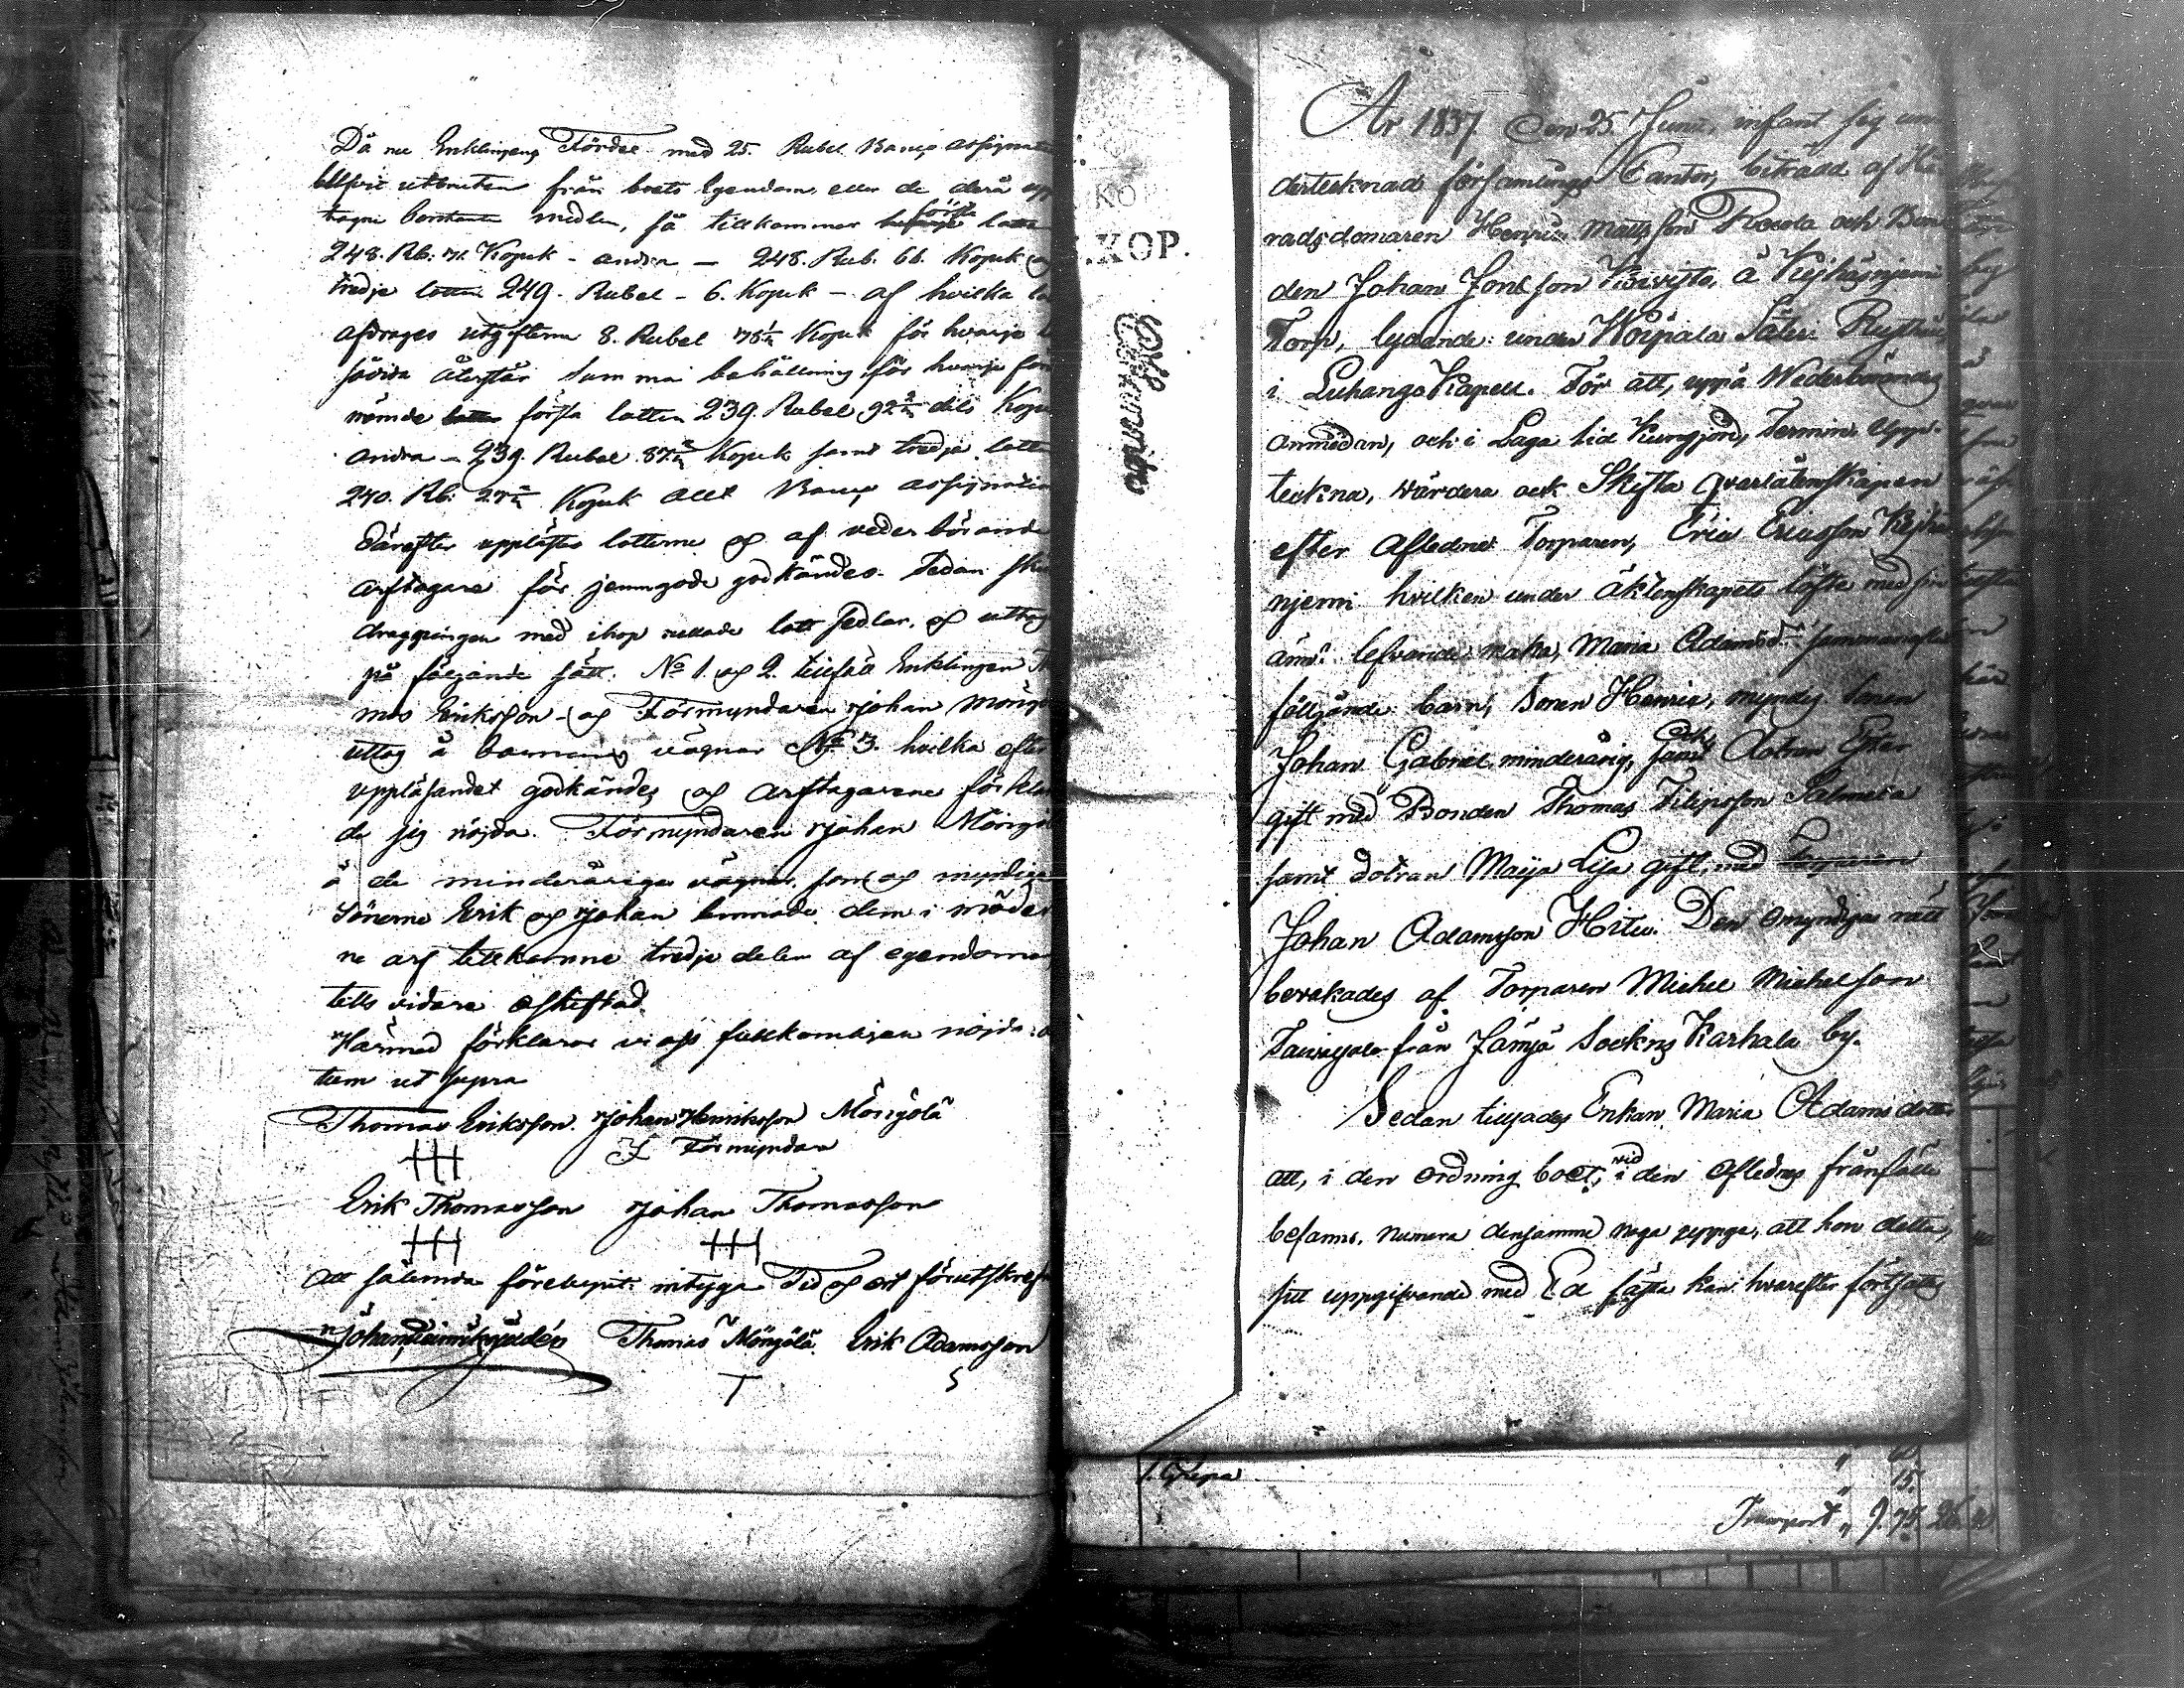 Då nu Enklingens Fördel med 25. Rubel Banco assignat
blifvit utbruten från boets Egendom, eller de derå upp
tagne Contanta medlen, så tillkommer första lotten
248. Rb: 71. Kopek - andra - 248. Rub. 66. Kopek og
tredje lotten 249. Rubel - 6. Kopek - af hvilka
afdrages utgifterne 8. Rubel 78 Kopek för hvarje
såvida Återstår Summa behållning för hvarje
nämde första lotten 239. Rubel 92 dels Kopek
andra - 239. Rubel 87 Kopek samt tredje lotten
240. Rb: 27 Kopek allt Banco assignation
därefter upplästes lotterne og af vederbörande
arftagare för jemngode godkändes. Sedan
draggningen med ihop rullade lott sedlar, og uttog
på följande sätt. No 1. og 2. tillföll Enklingen
mas Eriksson - og Förmyndaren Johan Möngö
uttog å barnens vägnar No 3. hvilka efter
uppläsandet godkändes og arftagarene förkla
de sig nöjda. Förmyndaren Johan Möngö
å de minderåriges vägnar, samt og myndige
Sönerne Erik og Johan lemnade dem i möder
ne arf tillkomne tredje delen af egendomen
tills vidare oskiftad.
Härmed förklarar vi oss fullkomligen nöjda
tum ut supra
Thomas Eriksson. Johan Henriksson Möngölä
Förmyndare
Erik Thomasson Johan Thomasson
Att sålunda förelupit intyga Tid og ort förutskref
Johan Thomas Möngölä. Erik Adamsson
KO
KOP.
År 1837 den 25. Junii, infant sig un
dertecknad församlings Cantor, biträdd af Hä
radsdomaren Henric Mattsson Rouola och Bon
den Johan Jonsson Koivisto, å Kejhäsnjemi
Torp, lydande under Hoipala Säteri Rusthåll,
i Luhango Kapell. För att, uppå Wederbörandes
anmodan, och i Laga tid Kungjord, Termin upp
teckna, värdera och Skifta Qvarlåtenskapen
efter Afledne Torparen, Eric Ericsson Kejhäs
njemi hvilken under äktenskapets löfte med sin
ännu lefvande maka, Maria Adamsd:r sammanaflat
följande barn, Sonen Henric, myndig Sonen
Johan Gabriel, minderårig, och Dotran Ester
gift med Bonden Thomas Filipsson Salmela
samt dotran Maija Lisa gift, med Torparen
Johan Adamsson Hitu. Den Omyndiges rätt
bevakades af Torparen Michel Michelson
från Jämsä Sockns Karhala by.
Sedan tilljades Enkan, Maria Adams dotter
att, i den ordning boet, vid den Afledнes frånfälle
befanns, numera densamma noga uppge, att hon detta,
sitt uppgifvande med Ed fästa kan hvarefter förtsattes
15.
Transport „ 9. 75.